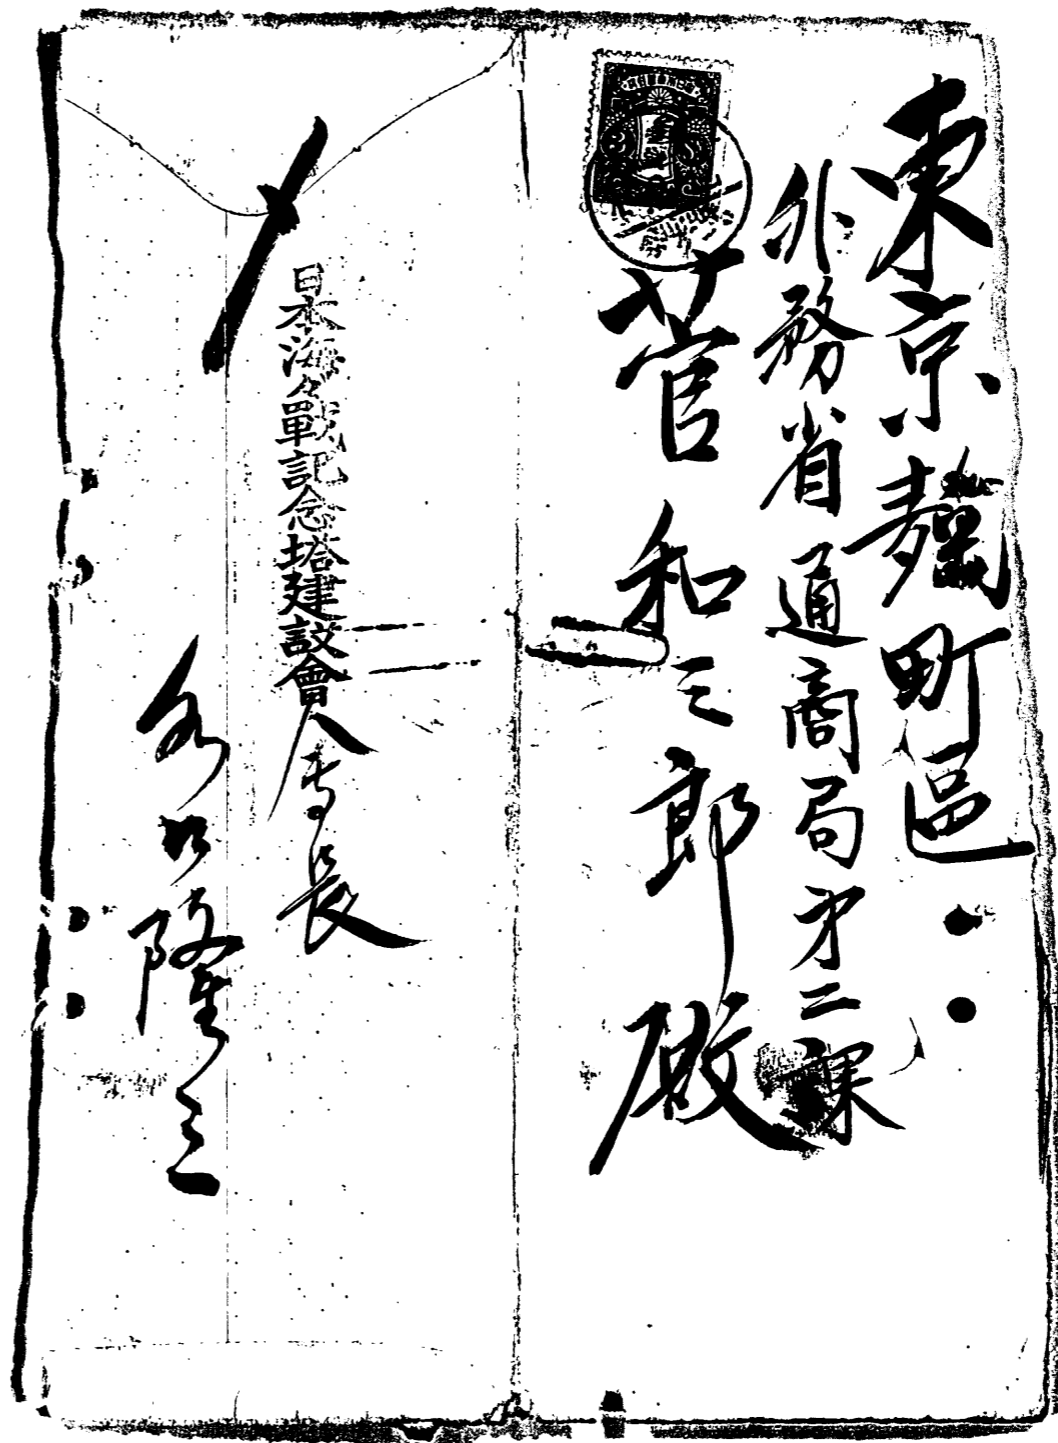 東京麹町區
外務省通商局第二課
菅和三郎殿
日本海々戰記念塔建設會
会長
隆三